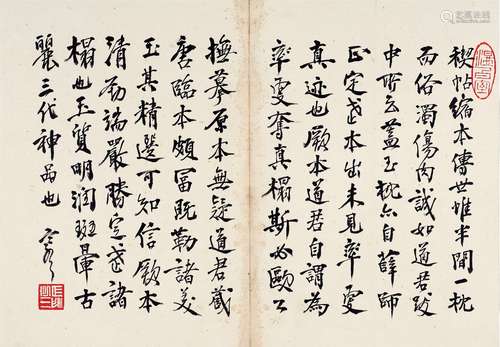 禊帖縮本傳世惟半閒一枕
而俗濁傷肉誠如道君跋
中所云蓋玉枕亦自薛師
正定武本出未見率更
真迹也厥本道君自謂為
率更奪真榻斯必歐公
撫摹原本無疑道君藏
唐臨本頗富既勒諸美
玉其精選可知信厥本
清勁端嚴勝定武諸
榻也玉質明潤斑暈古
麗三代神品也